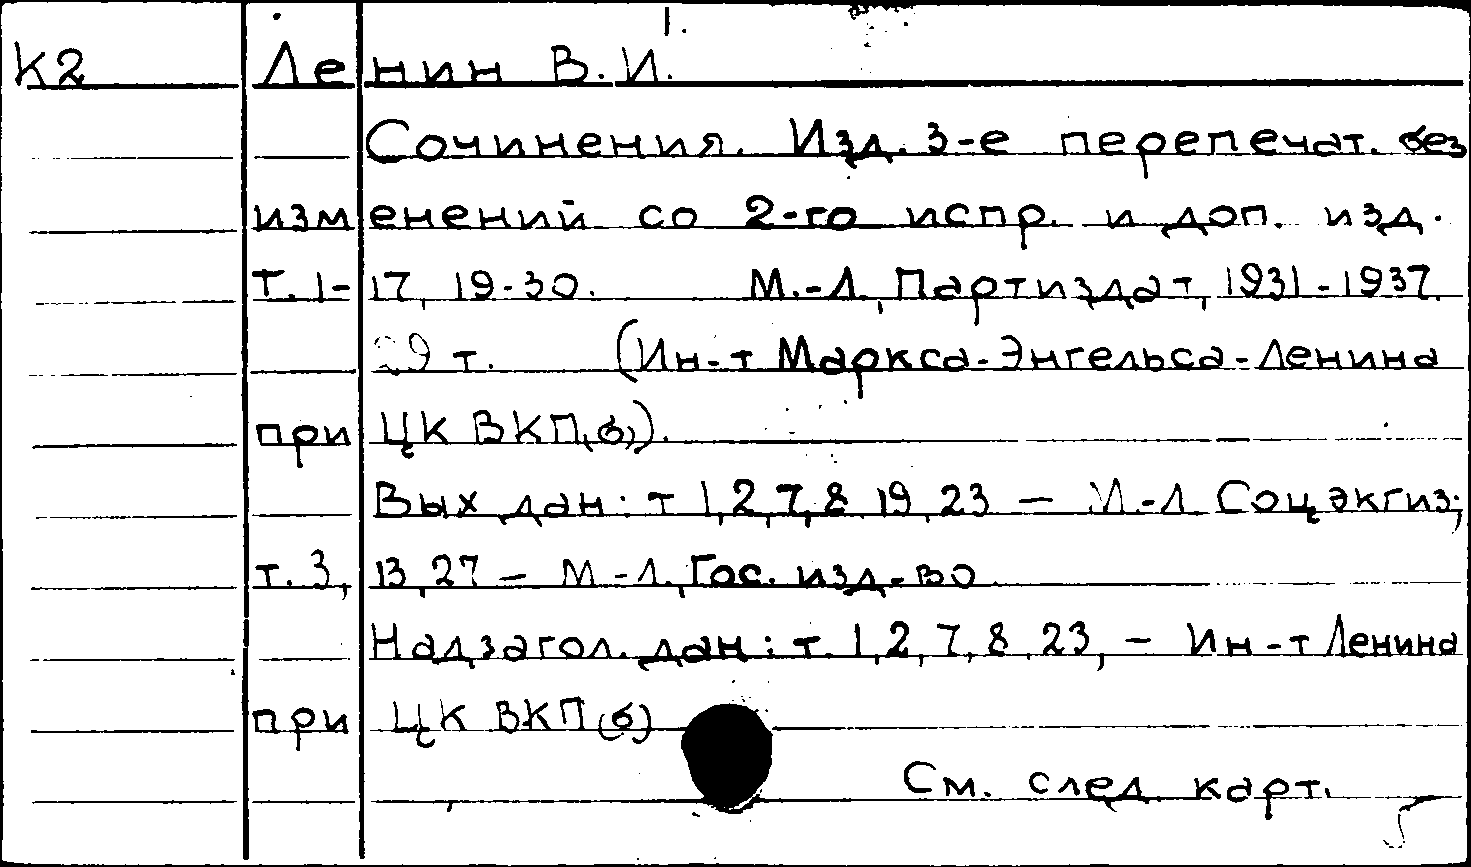 1.
К2 Ленин В.И.
Сочинения. Изд. 3-е перепечат. без
изменений со 2-го испр. и доп. изд.
Т. 1-17, 19-30. М.-Л., Партиздат, 1931-1937.
29 т. (Ин-т Маркса-Энгельса-Ленина
при ЦК ВКП(б)).
Вых дан: т 1,2,7,8 19,23 — М.-Л Соцэкгиз;
т. 3, 13,27 — М-Л., Гос. изд-во
Надзагол. дан: т. 1,2,7,8,23, — Ин-т Ленина
при ЦК ВКП(б)
См. след карт.